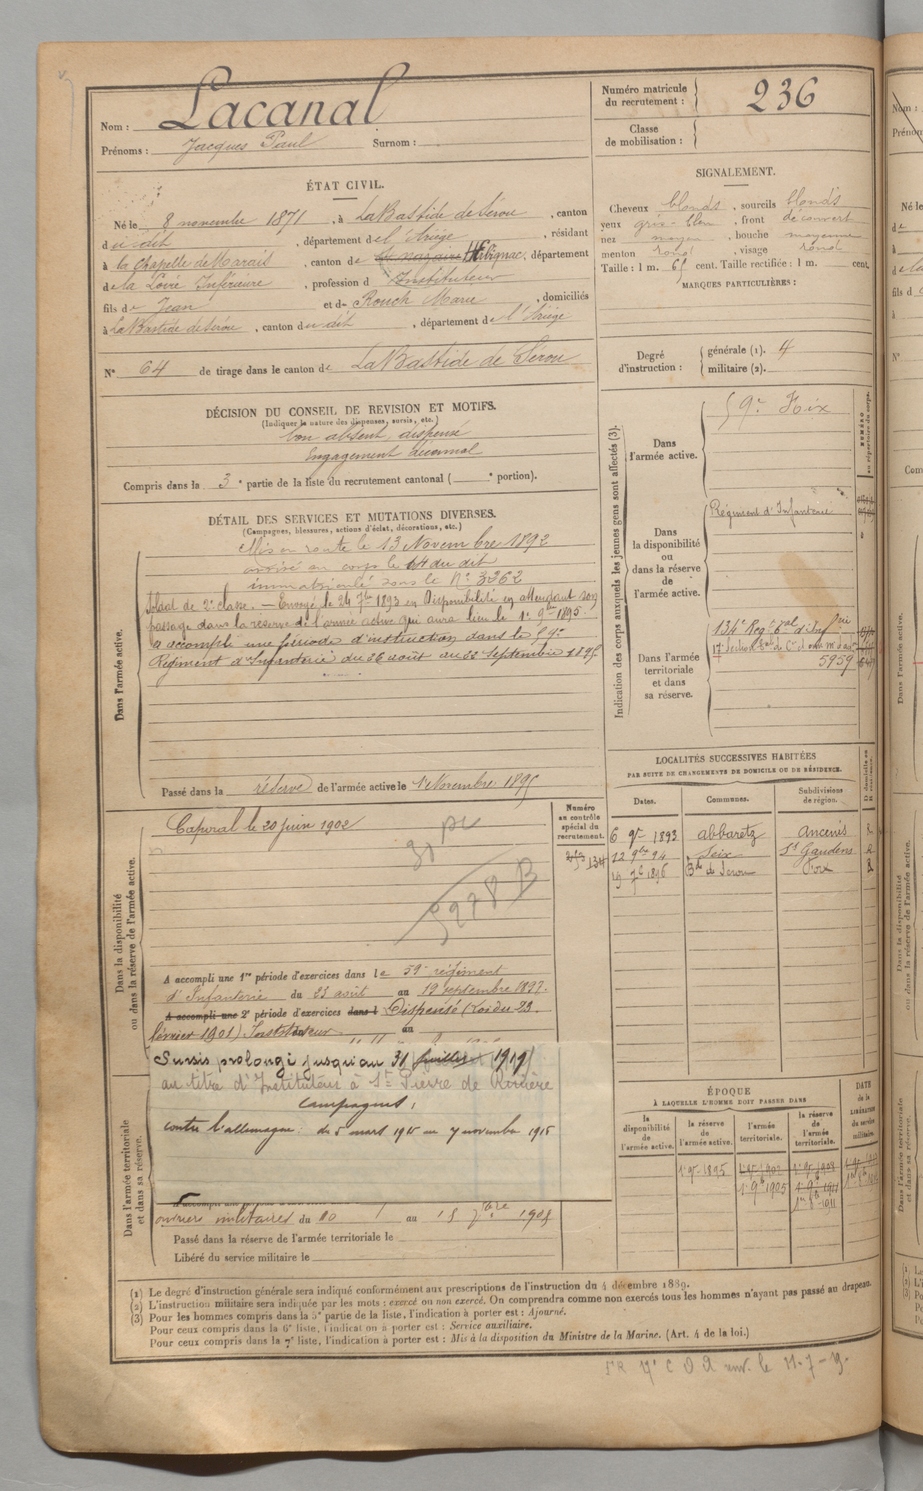 Nom : Lacanal
Prénoms : Jacques Paul Surnom :
Numéro matricule du recrutement : 236
Classe de mobilisation :
ÉTAT CIVIL.
Né le 8 novembre 1871, à LaBastide de Sérou, canton
du dit, département de l'Ariège, résidant
à la Chapelle de Marais, canton de St Nazaire Herbignac, département
de la Loire Inférieure, profession d'Instituteur
fils de Jean et de Rouch Marie, domiciliés
à LaBastide de Sérou, canton du dit, département de l'Ariège
N° 64 de tirage dans le canton de LaBastide de Sérou
SIGNALEMENT.
Cheveux blonds, sourcils blonds
yeux gris-bleu, front découvert
nez moyen, bouche moyenne
menton rond, visage rond
Taille : 1 m. 65 cent. Taille rectifiée : 1 m. cent.
MARQUES PARTICULIÈRES :
Degré d'instruction : générale (1). 4
militaire (2).
DÉCISION DU CONSEIL DE REVISION ET MOTIFS.
(Indiquer la nature des dispenses, sursis, etc.)
bon absent, dispensé
Engagement décennal
Compris dans la 3e partie de la liste du recrutement cantonal ( e portion).
DÉTAIL DES SERVICES ET MUTATIONS DIVERSES.
(Campagnes, blessures, actions d'éclat, décorations, etc.)
Dans l'armée active.
Mis en route le 13 Novembre 1892
arrivé au corps le 14 du dit
immatriculé sous le N° 3262
Soldat de 2e classe. — Envoyé le 24 7bre 1893 en Disponibilité en attendant son
passage dans la réserve de l'armée active qui aura lieu le 1er 9bre 1895.
a accompli une période d'instruction dans le 59e
Régiment d'Infanterie du 26 août au 22 septembre 1895
Passé dans la réserve de l'armée active le 1 Novembre 1895
Indication des corps auxquels les jeunes gens sont affectés (3).
Dans l'armée active. 59e Foix
Dans la disponibilité ou dans la réserve de l'armée active. Régiment d'Infanterie
Dans l'armée territoriale et dans sa réserve. 134e Reg
17e Section
5959
LOCALITÉS SUCCESSIVES HABITÉES
PAR SUITE DE CHANGEMENTS DE DOMICILE OU DE RÉSIDENCE.
Dates. Communes. Subdivisions de région.
6 9bre 1893 abbaretz Ancenis R
12 9bre 94 Seix St Gaudens R
19 7bre 1896 Bde de Serou Foix R
Numéro au contrôle spécial du recrutement.
134
Dans la disponibilité ou dans la réserve de l'armée active.
Caporal le 20 juin 1902
5978 B
A accompli une 1re période d'exercices dans le 59e régiment
d'Infanterie du 23 août au 19 septembre 1897.
A accompli une 2e période d'exercices dans l Dispensé (Loi du 23
février 1901) Instituteur au
Sursis prolongé jusqu'au 31 juillet 1919
au titre d'Instituteur à St Pierre de Rivière
Campagnes :
contre l'allemagne: du 5 mars 1915 au 7 novembre 1915
Dans l'armée territoriale et dans sa réserve.
ouvriers militaires du 10 au 18 7bre 1908
Passé dans la réserve de l'armée territoriale le
Libéré du service militaire le
ÉPOQUE
À LAQUELLE L'HOMME DOIT PASSER DANS
la disponibilité de l'armée active. la réserve de l'armée active. l'armée territoriale. la réserve de l'armée territoriale. DATE de la LIBÉRATION du service militaire.
1 9bre 1895
1 9bre 1905
1 9bre 1911
(1) Le degré d'instruction générale sera indiqué conformément aux prescriptions de l'instruction du 4 décembre 1889.
(2) L'instruction militaire sera indiquée par les mots : exercé ou non exercé. On comprendra comme non exercés tous les hommes n'ayant pas passé au drapeau.
(3) Pour les hommes compris dans la 5e partie de la liste, l'indication à porter est : Ajourné.
Pour ceux compris dans la 6e liste, l'indication à porter est : Service auxiliaire.
Pour ceux compris dans la 7e liste, l'indication à porter est : Mis à la disposition du Ministre de la Marine. (Art. 4 de la loi.)